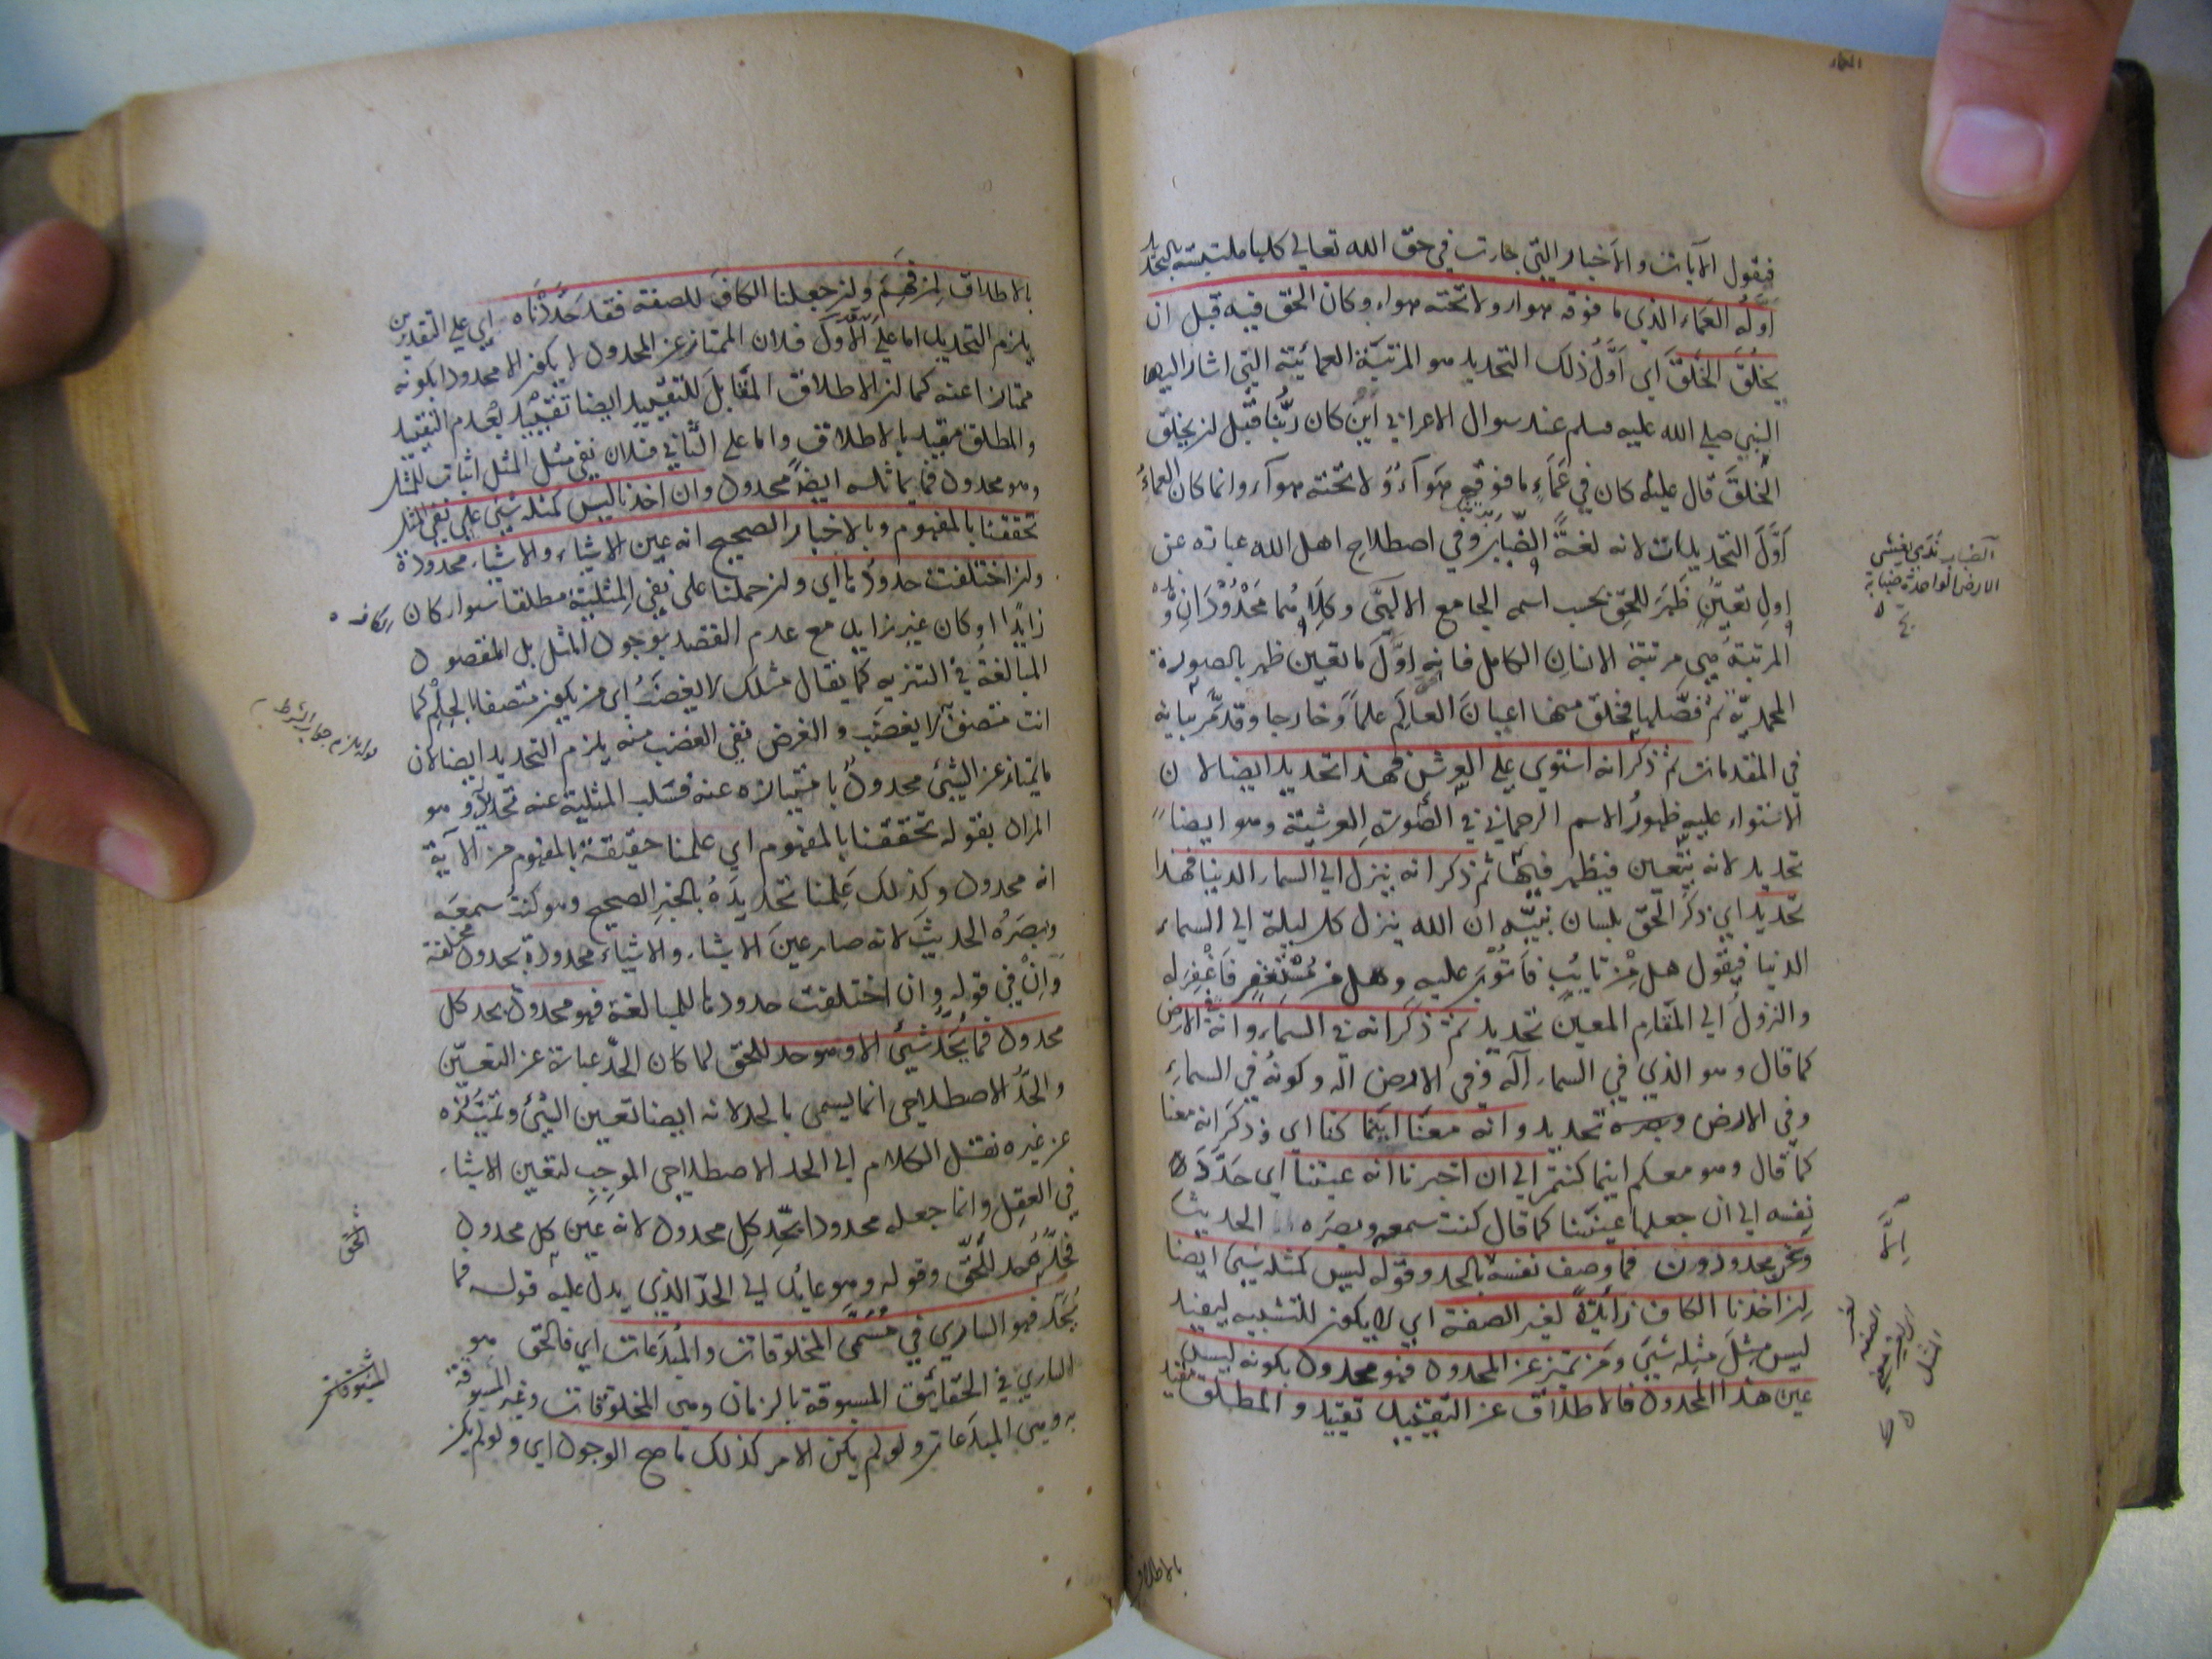 فيقول الآيات والأخبار التي جارت في حق الله تعالى كلها ملتبسة بالتحديد
اوله العماء الذي ما فوقه هواء ولا تحته هواء وكان الحق فيه قبل ان
يخلق الخلق اى اول ذلك التحديد هو المرتبة العمائية التي اشار اليها
النبي صلى الله عليه وسلم عند سوال الاعرابي اين كان ربنا قبل ان يخلق
الخلق قال عليه كان في عماء ما فوقه هواء ولا تحته هواء وانما كان العماء
اول التحديدات لانه لغة الضباب وفي اصطلاح اهل الله عبارة عن
اول تعين ظهر للحق بحسب اسمه الجامع الالهى وكلاهما محدودان و
المرتبة هي مرتبة الانسان الكامل فانه اول ما تعين ظهر بالصورة
المحمدية ثم فصلها فخلق منها اعيان العالم علما وخارجا وقد مر بيانه
في المقدمات ثم ذكر انه استوى على العرش فهذا تحديد ايضا لان
الاستواء عليه ظهور الاسم الرحماني في الصورة العرشية وهو ايضا
تحديد لانه يتعين فيظهر فيها ثم ذكر انه ينزل الى السماء الدنيا فهذا
تحديد اى ذكر الحق بلسان نبيه ان الله ينزل كل ليلة الى السماء
الدنيا فيقول هل من تايب فاتوب عليه وهل من مستغفر فاغفر له
والنزول الى المقام المعين تحديد ثم ذكر انه في السماء وانه في الارض
كما قال وهو الذي في السماء اله وفي الارض اله وكونه في السماء
وفي الارض تحديد وانه معنا اينما كنا اى وذكر انه معنا
كما قال وهو معكم اينما كنتم الى ان اخبرنا انه عيننا اى حدد
نفسه الى ان جعلها عيننا كما قال كنت سمعه وبصره الحديث
ونحن محدودون فما وصف نفسه الا بالحد وقوله ليس كمثله شيء ايضا
ان اخذنا الكاف زايدة لغير الصفة اى لا يكون للتشبيه ليفيد
ليس مثل مثله شيء ومن تميز عن المحدود فهو محدود بكونه ليس
عين هذا المحدود فالاطلاق عن التقييد تقييد والمطلق مقيد
الضباب ندى يغشى
الارض الواحدة ضبابة
بالاطلاق
بالاطلاق لمن فهم وان جعلنا الكاف للصفة فقد حددناه اى على التقديرين
يلزم التحديد اما على الاول فلان الممتاز عن المحدود لا يكون الا محدودا بكونه
ممتازا عنه كما ان الاطلاق المقابل للتقييد ايضا تقييد بعدم التقييد
والمطلق مقيد بالاطلاق واما على الثاني فلان نفي مثل المثل اثبات للمثل
وهو محدود فما يماثله ايضا محدود وان اخذنا ليس كمثله شيء على نفي المثل
تحققنا بالمفهوم وبالاخبار الصحيح انه عين الاشياء والاشياء محدودة
وان اختلفت حدودها اى وان حملنا على نفي المثلية مطلقا سواء كان الكاف
زايدا او كان غير زايد مع عدم القصد بوجود المثل بل المقصود
المبالغة في التنزيه كما يقال مثلك لا يغضب اى من يكون متصفا بالحلم كما
انت متصف لا يغضب والغرض نفي الغضب منه يلزم التحديد ايضا لان
ما يمتاز عن الشيء محدود بامتيازه عنه فسلب المثلية عنه تحديد وهو
المراد بقوله تحققنا بالمفهوم اى علمنا حقيقة بالمفهوم من الآية
انه محدود وكذلك علمنا تحديده بالخبر الصحيح وهو كنت سمعه
وبصره الحديث لانه صار عين الاشياء والاشياء محدودة بحدود مختلفة
وان في قوله وان اختلفت حدودها للمبالغة فهو محدود بحد كل
محدود فما يحد شيء الا وهو حد للحق لما كان الحد عبارة عن التعين
والحد الاصطلاحي انما يسمى بالحد لانه ايضا تعين الشيء وتميزه
عن غيره نقل الكلام الى الحد الاصطلاحي الموجب لتعين الاشياء
في العقل وانما جعله محدودا بحد كل محدود لانه عين كل محدود
فحده حد للحق وقوله وهو عايد الى الحد الذي يدل عليه قوله فما
يحد فهو الساري في مسمى المخلوقات والمبدعات اى فالحق هو
الساري في الحقايق المسبوقة بالزمان وهى المخلوقات وغير المسبوقة
به وهى المبدعات ولو لم يكن الامر كذلك ما صح الوجود اى ولو لم يكن
الحق